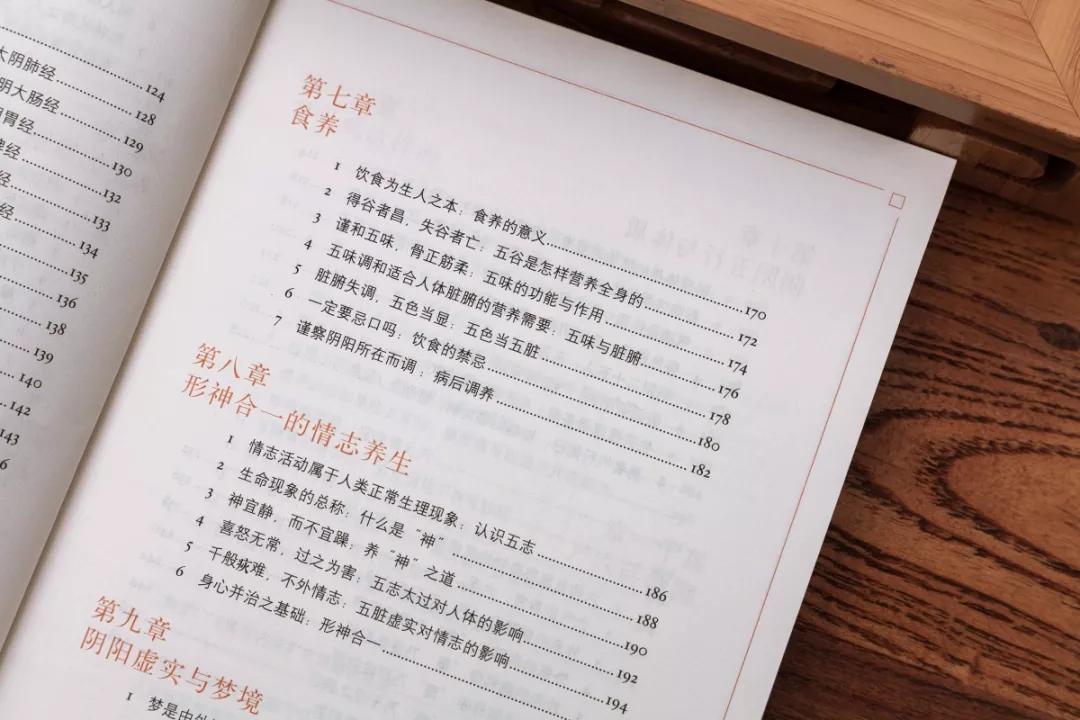 太阴肺经……124
明大肠经……128
胃经……129
脾经……130
经……132
经……133
134
135
136
138
139
140
142
143
6
第七章
食养
1 饮食为生人之本：食养的意义……170
2 得谷者昌，失谷者亡：五谷是怎样营养全身的……172
3 谨和五味，骨正筋柔：五味的功能与作用……174
4 五味调和适合人体脏腑的营养需要：五味与脏腑……176
5 脏腑失调，五色当显：五色当五脏……178
6 一定要忌口吗：饮食的禁忌……180
7 谨察阴阳所在而调：病后调养……182
第八章
形神合一的情志养生
1 情志活动属于人类正常生理现象：认识五志……186
2 生命现象的总称：什么是“神”……188
3 神宜静，而不宜躁：养“神”之道……190
4 喜怒无常，过之为害：五志太过对人体的影响……192
5 千般疢难，不外情志：五脏虚实对情志的影响……194
6 身心并治之基础：形神合一……
第九章
阴阳虚实与梦境
1 梦是由外